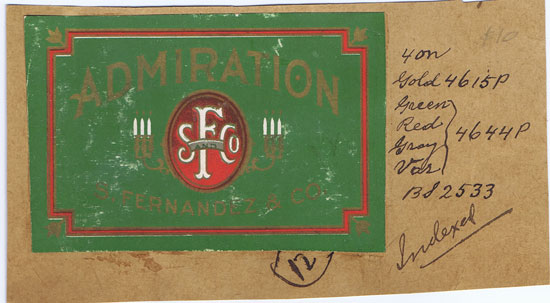 ADMIRATION
S F AND CO
S. FERNANDEZ & CO.
4on
Gold 4615P
Green
Red
Gray
Var
4644P
B82533
Indexed
12